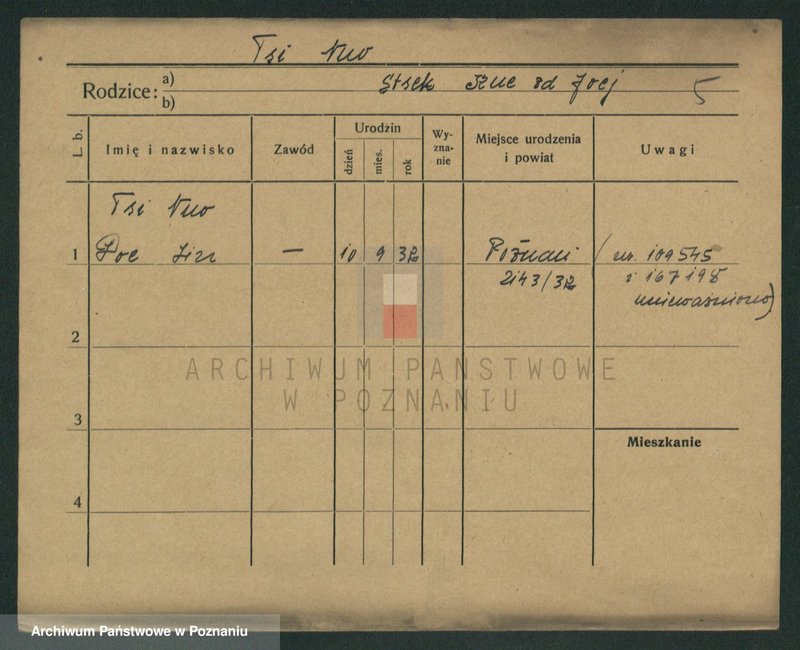 Tsi Nuo
Rodzice: a)
b)
5
L. b.
Imię i nazwisko
Zawód
Urodzin
dzień
mies.
rok
Wy-
zna-
nie
Miejsce urodzenia
i powiat
Uwagi
Tsi Nuo
1
— 10 9 32
Poznań
2143/32
(nr. 109545
i 167198
unieważniono)
2
3
4
Mieszkanie
ARCHIWUM PAŃSTWOWE
W POZNANIU
Archiwum Państwowe w Poznaniu